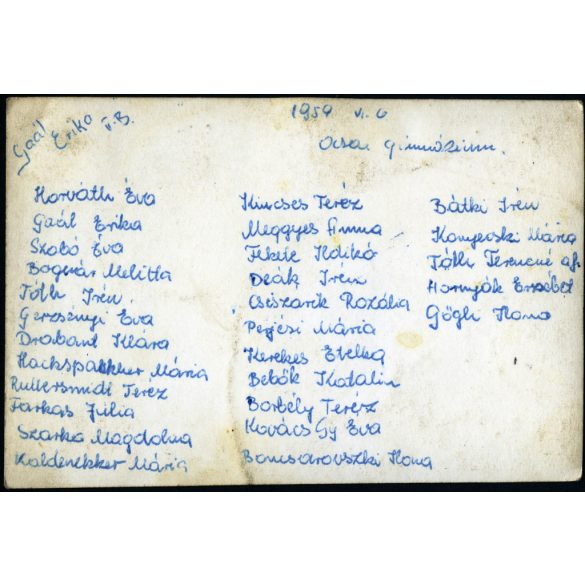 Gaál
Erika V.B.
1959 VI. 6
Ócsa. gimnázium.
Horváth Éva
Gaál Erika
Szabó Éva
Bognár Melitta
Tóth Irén
Gerzsényi Éva
Drabant Klára
Hochspakker Mária
Rullersmidt Teréz
Farkas Júlia
Szarka Magdolna
Kaldenekker Mária
Kincses Teréz
Meggyes Anna
Fekete Ildikó
Deák Irén
Csiszarik Rozália
Perjési Mária
Kerekes Etelka
Bebők Katalin
Borbély Teréz
Kovács Gy Éva
Boncsarovszki Ilona
Bátki Irén
Mária
Tóth Ferencné
Hornyák Erzsébet
Gögh Ilona